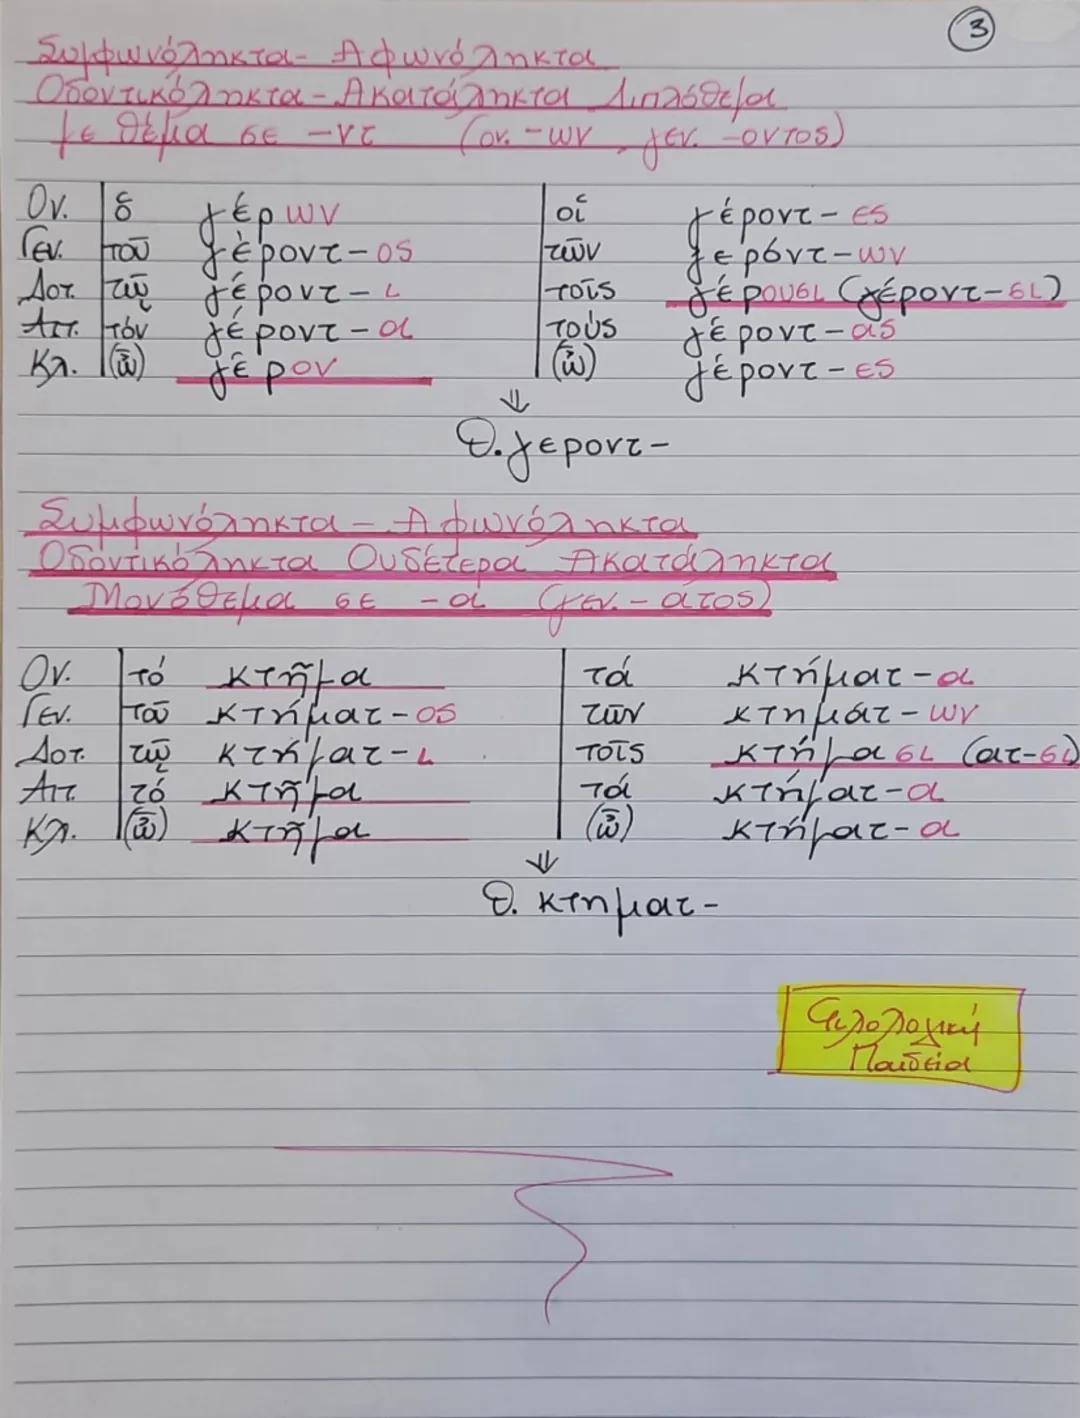 3
Συμφωνόληκτα - Αφωνόληκτα
Οδοντικόληκτα - Ακατάληκτα Διπλόθεμα
με θέμα σε -ντ (ον. -ων, γεν. -οντος)
Ον. ὁ γέρων οἱ γέροντ-ες
Γεν. τοῦ γέροντ-ος τῶν γερόντ-ων
Δοτ. τῷ γέροντ-ι τοῖς γέρουσι (γέροντ-σι)
Αιτ. τόν γέροντ-α τούς γέροντ-ας
Κλ. (ὦ) γέρον (ὦ) γέροντ-ες
⇓
Θ. γεροντ-
Συμφωνόληκτα - Αφωνόληκτα
Οδοντικόληκτα Ουδέτερα Ακατάληκτα
Μονόθεμα σε -α (γεν. -ατος)
Ον. τό κτῆμα τά κτήματ-α
Γεν. τοῦ κτήματ-ος τῶν κτημάτ-ων
Δοτ. τῷ κτήματ-ι τοῖς κτήμασι (ατ-σι)
Αιτ. τό κτῆμα τά κτήματ-α
Κλ. (ὦ) κτῆμα (ὦ) κτήματ-α
⇓
Θ. κτηματ-
Φιλολογική
Παιδεία